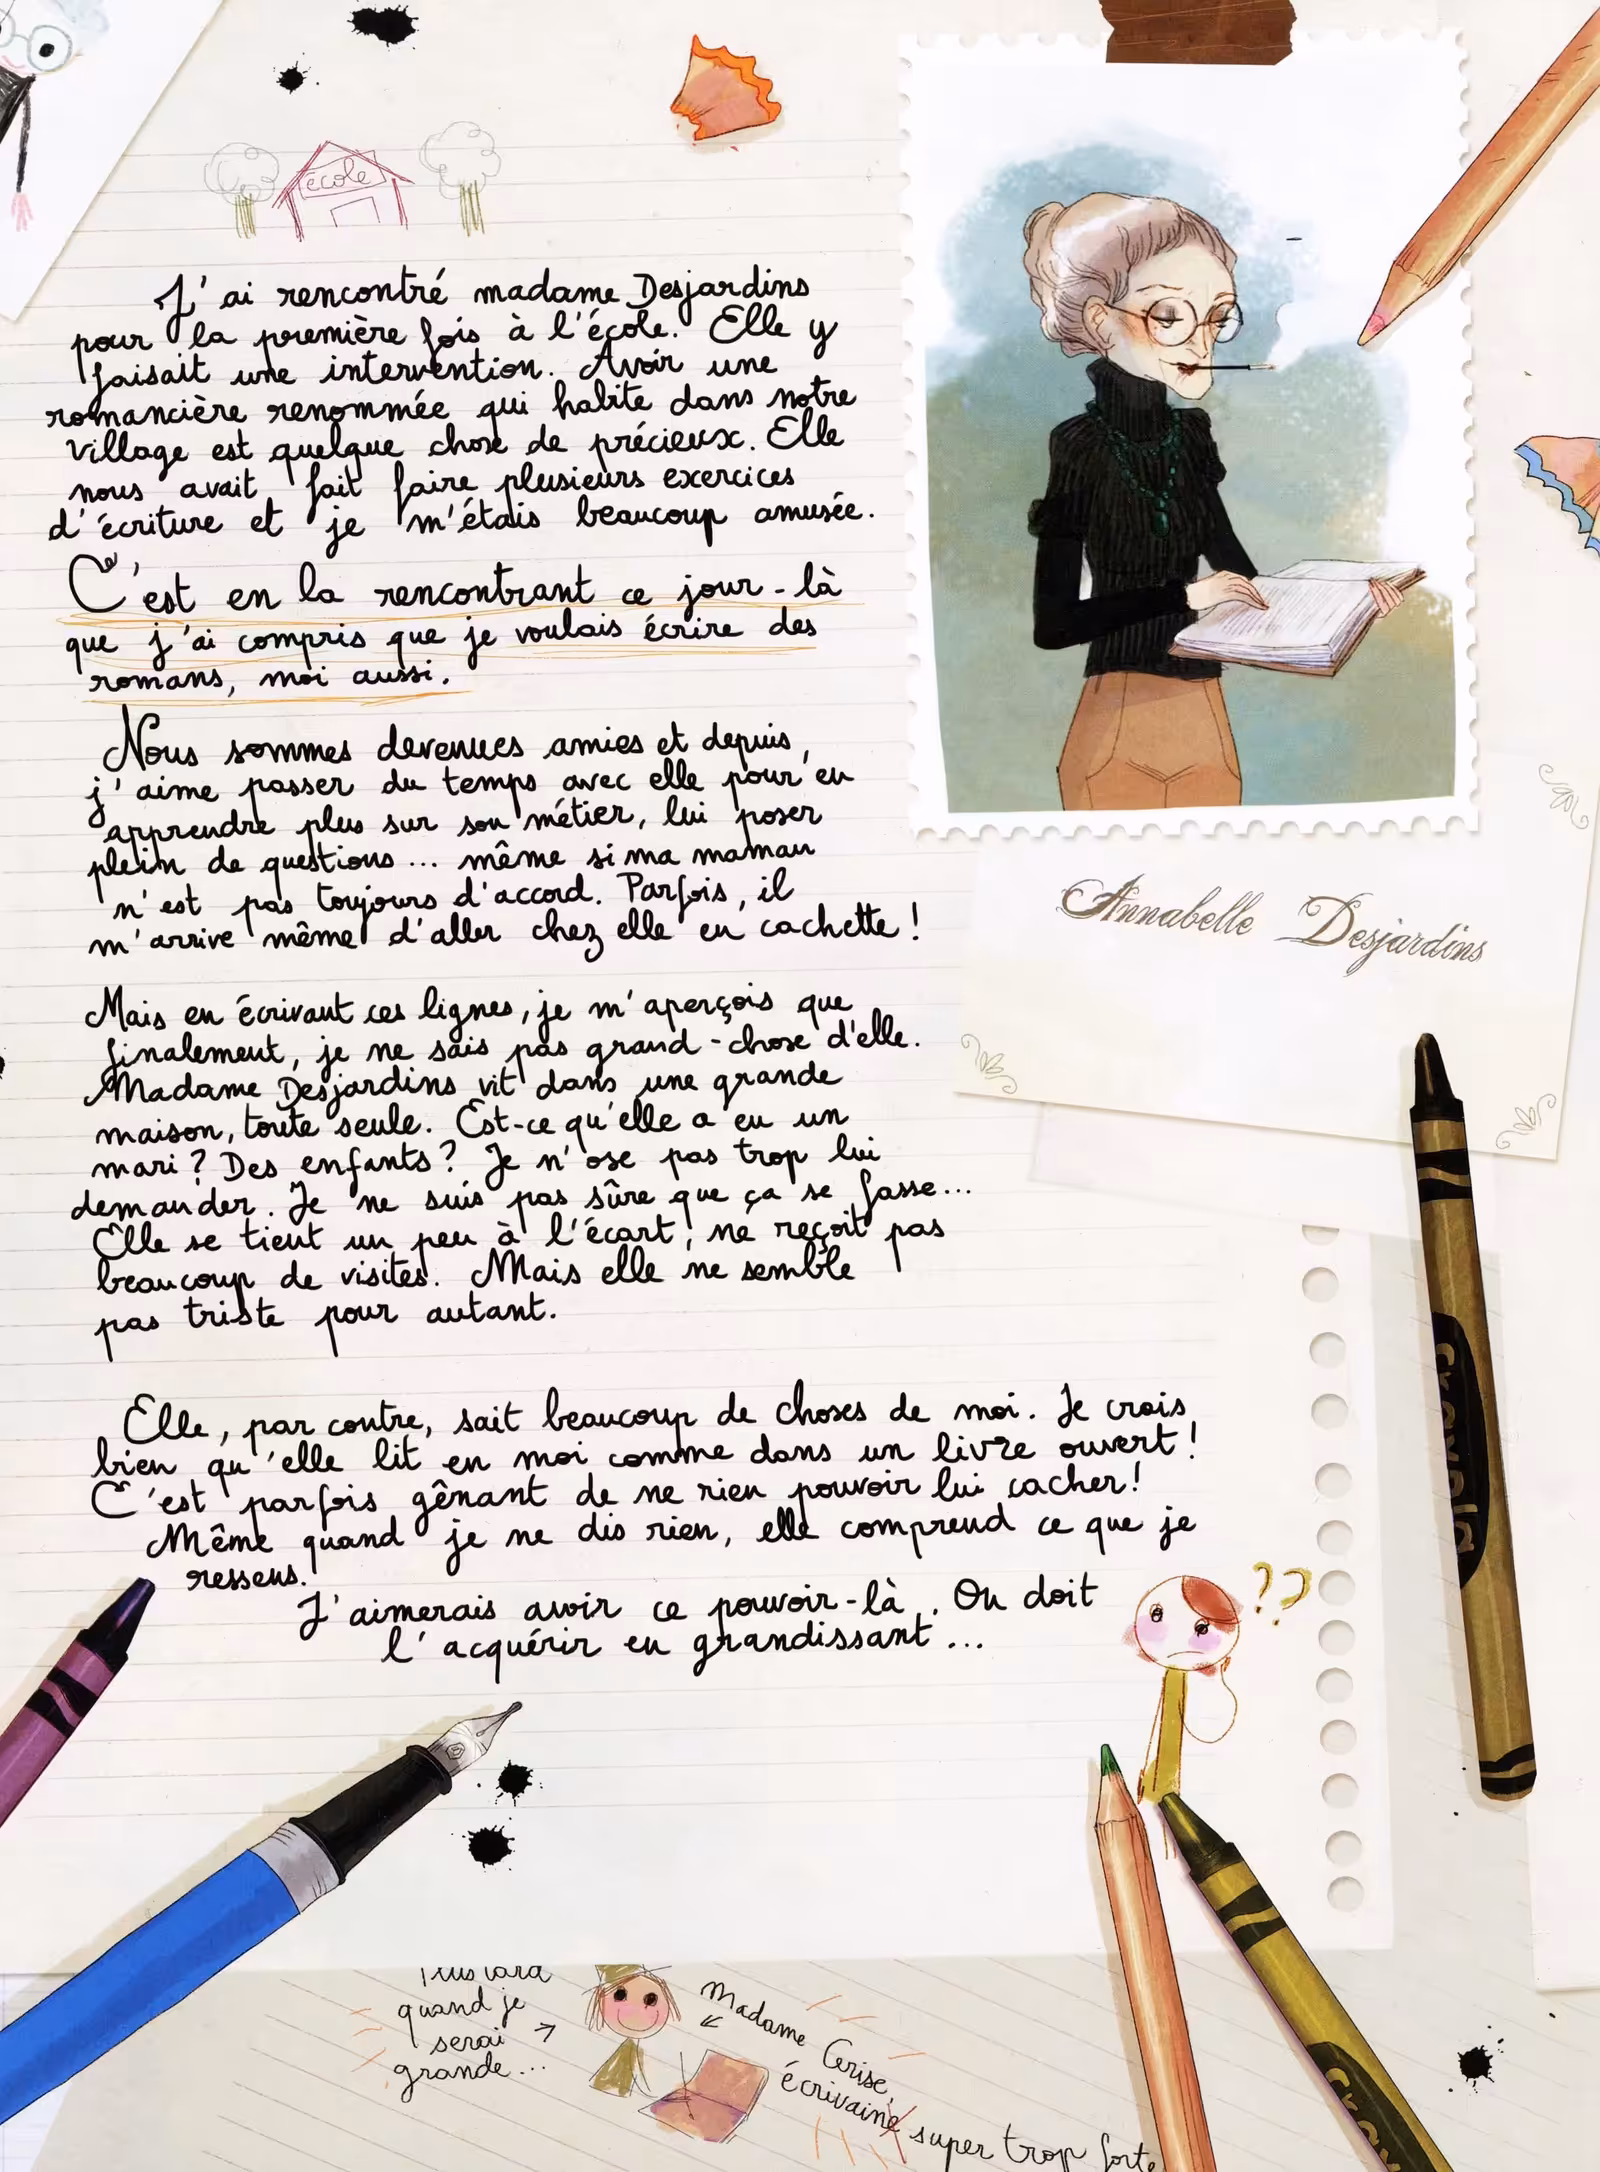 école
J'ai rencontré madame Desjardins
pour la première fois à l'école. Elle y
faisait une intervention. Avoir une
romancière renommée qui habite dans notre
village est quelque chose de précieux. Elle
nous avait fait faire plusieurs exercices
d'écriture et je m'étais beaucoup amusée.
C'est en la rencontrant ce jour-là
que j'ai compris que je voulais écrire des
romans, moi aussi.
Nous sommes devenues amies et depuis,
j'aime passer du temps avec elle pour en
apprendre plus sur son métier, lui poser
plein de questions... même si ma maman
n'est pas toujours d'accord. Parfois, il
m'arrive même d'aller chez elle en cachette !
Annabelle Desjardins
Mais en écrivant ces lignes, je m'aperçois que
finalement, je ne sais pas grand-chose d'elle.
Madame Desjardins vit dans une grande
maison, toute seule. Est-ce qu'elle a eu un
mari ? Des enfants ? Je n'ose pas trop lui
demander. Je ne suis pas sûre que ça se fasse...
Elle se tient un peu à l'écart, ne reçoit pas
beaucoup de visites. Mais elle ne semble
pas triste pour autant.
Elle, par contre, sait beaucoup de choses de moi. Je crois
bien qu'elle lit en moi comme dans un livre ouvert !
C'est parfois gênant de ne rien pouvoir lui cacher !
Même quand je ne dis rien, elle comprend ce que je
ressens.
J'aimerais avoir ce pouvoir-là. On doit
l'acquérir en grandissant...
??
Crayola
Plus tard
quand je
serai
grande...
Madame Cerise,
écrivaine
super trop forte
Cray